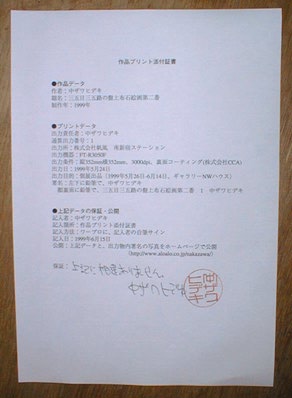 作品プリント添付証書
●作品データ
作者：中ザワヒデキ
題名：三五目三五路の盤上布石絵画第二番
制作年：1999年
●プリントデータ
出力責任者：中ザワヒデキ
通算出力番号：1
出力所：株式会社帆風 南新宿ステーション
出力機器：FT-R3050F
出力条件：縦352mm横352mm、3000dpi、真面コーティング(株式会社CCA)
出力日：1999年5月24日
出力目的：個展出品（1999年5月26日-6月14日、ギャラリーNWハウス）
署名：左下に鉛筆で、中ザワヒデキ
三五目三五路の盤上布石絵画第二番 1 中ザワヒデキ
●上記データの保証・公開
記入者：中ザワヒデキ
記入箇所：作品プリント添付証書
記入方法：ワープロに、記入者の自筆サイン
記入日：1999年6月15日
公開：上記データと、出力物内署名の写真をホームページで公開
(http://www.aloalo.co.jp/nakazawa/)
保証：上記に相違ありません。
中ザワヒデキ
中ザワヒデキ